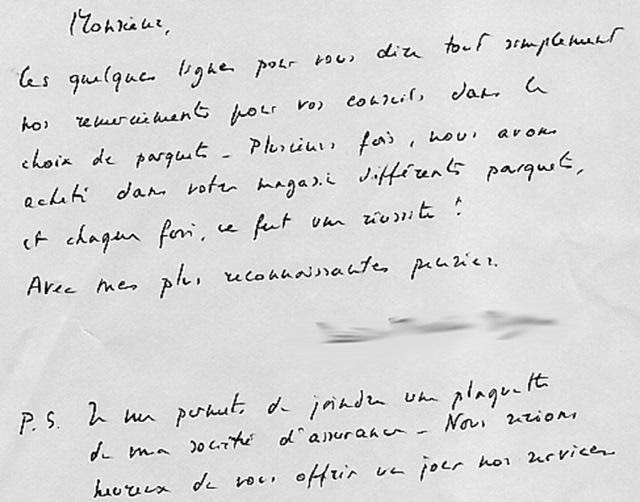 Monsieur,
Ces quelques lignes pour vous dire tout simplement
nos remerciements pour vos conseils dans le
choix de parquets - Plusieurs fois, nous avons
acheté dans votre magasin différents parquets,
et chaque fois, ce fut une réussite !
Avec mes plus reconnaissantes pensées.
P.S. Je me permets de joindre une plaquette
de ma société d'assurance - Nous serions
heureux de vous offrir un jour nos services